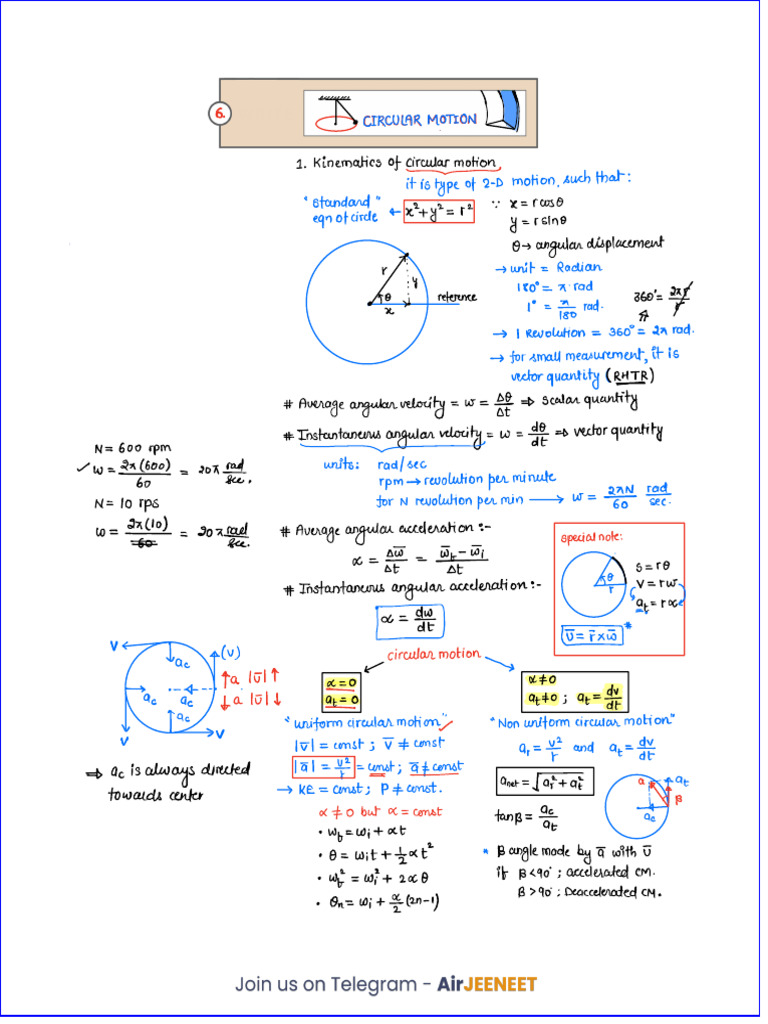 6.
CIRCULAR MOTION
1. Kinematics of circular motion
it is type of 2-D motion, such that:
"standard" eqn of circle ← x² + y² = r²
∵ x = r cosθ
y = r sinθ
θ → angular displacement
r
θ
y
x
reference
→ unit = Radian
180° = π rad
1° = π/180 rad.
360° = 2πr/r
→ 1 Revolution = 360° = 2π rad.
→ for small measurement, it is
vector quantity (RHTR)
# Average angular velocity = ω = Δθ/Δt ⇒ scalar quantity
# Instantaneous angular velocity = ω = dθ/dt ⇒ vector quantity
units: rad/sec
rpm → revolution per minute
for N revolution per min ⟶ ω = 2πN/60 rad/sec.
N = 600 rpm
✓ ω = 2π(600)/60 = 20π rad/sec.
N = 10 rps
ω = 2π(10)/60 = 20π rad/sec.
# Average angular acceleration :-
α = Δω̅/Δt = ω̅f - ω̅i/Δt
# Instantaneous angular acceleration :-
α = dω/dt
special note:
θ
r
S = rθ
v = rω
at = rα
v̅ = r̅ × ω̅ *
circular motion
v
(v)
ac
↑a |v̅|↑
↓a |v̅|↓
ac
ac
ac
v
v
⇒ ac is always directed
towards center
α = 0
at = 0
"uniform circular motion" ✓
|v̅| = const ; v̅ ≠ const
|a̅| = v²/r = const ; a̅ ≠ const
→ KE = const ; P ≠ const.
α ≠ 0 but α = const
• ωf = ωi + αt
• θ = ωit + 1/2 αt²
• ωf² = ωi² + 2αθ
• θn = ωi + α/2 (2n-1)
α ≠ 0
at ≠ 0 ; at = dv/dt
"Non uniform circular motion"
ar = v²/r and at = dv/dt
anet = √ar² + at²
tanβ = ac/at
a
at
β
ac
* β angle made by a̅ with v̅
if β < 90° ; accelerated CM.
β > 90° ; Deaccelerated CM.
Join us on Telegram - AirJEENEET